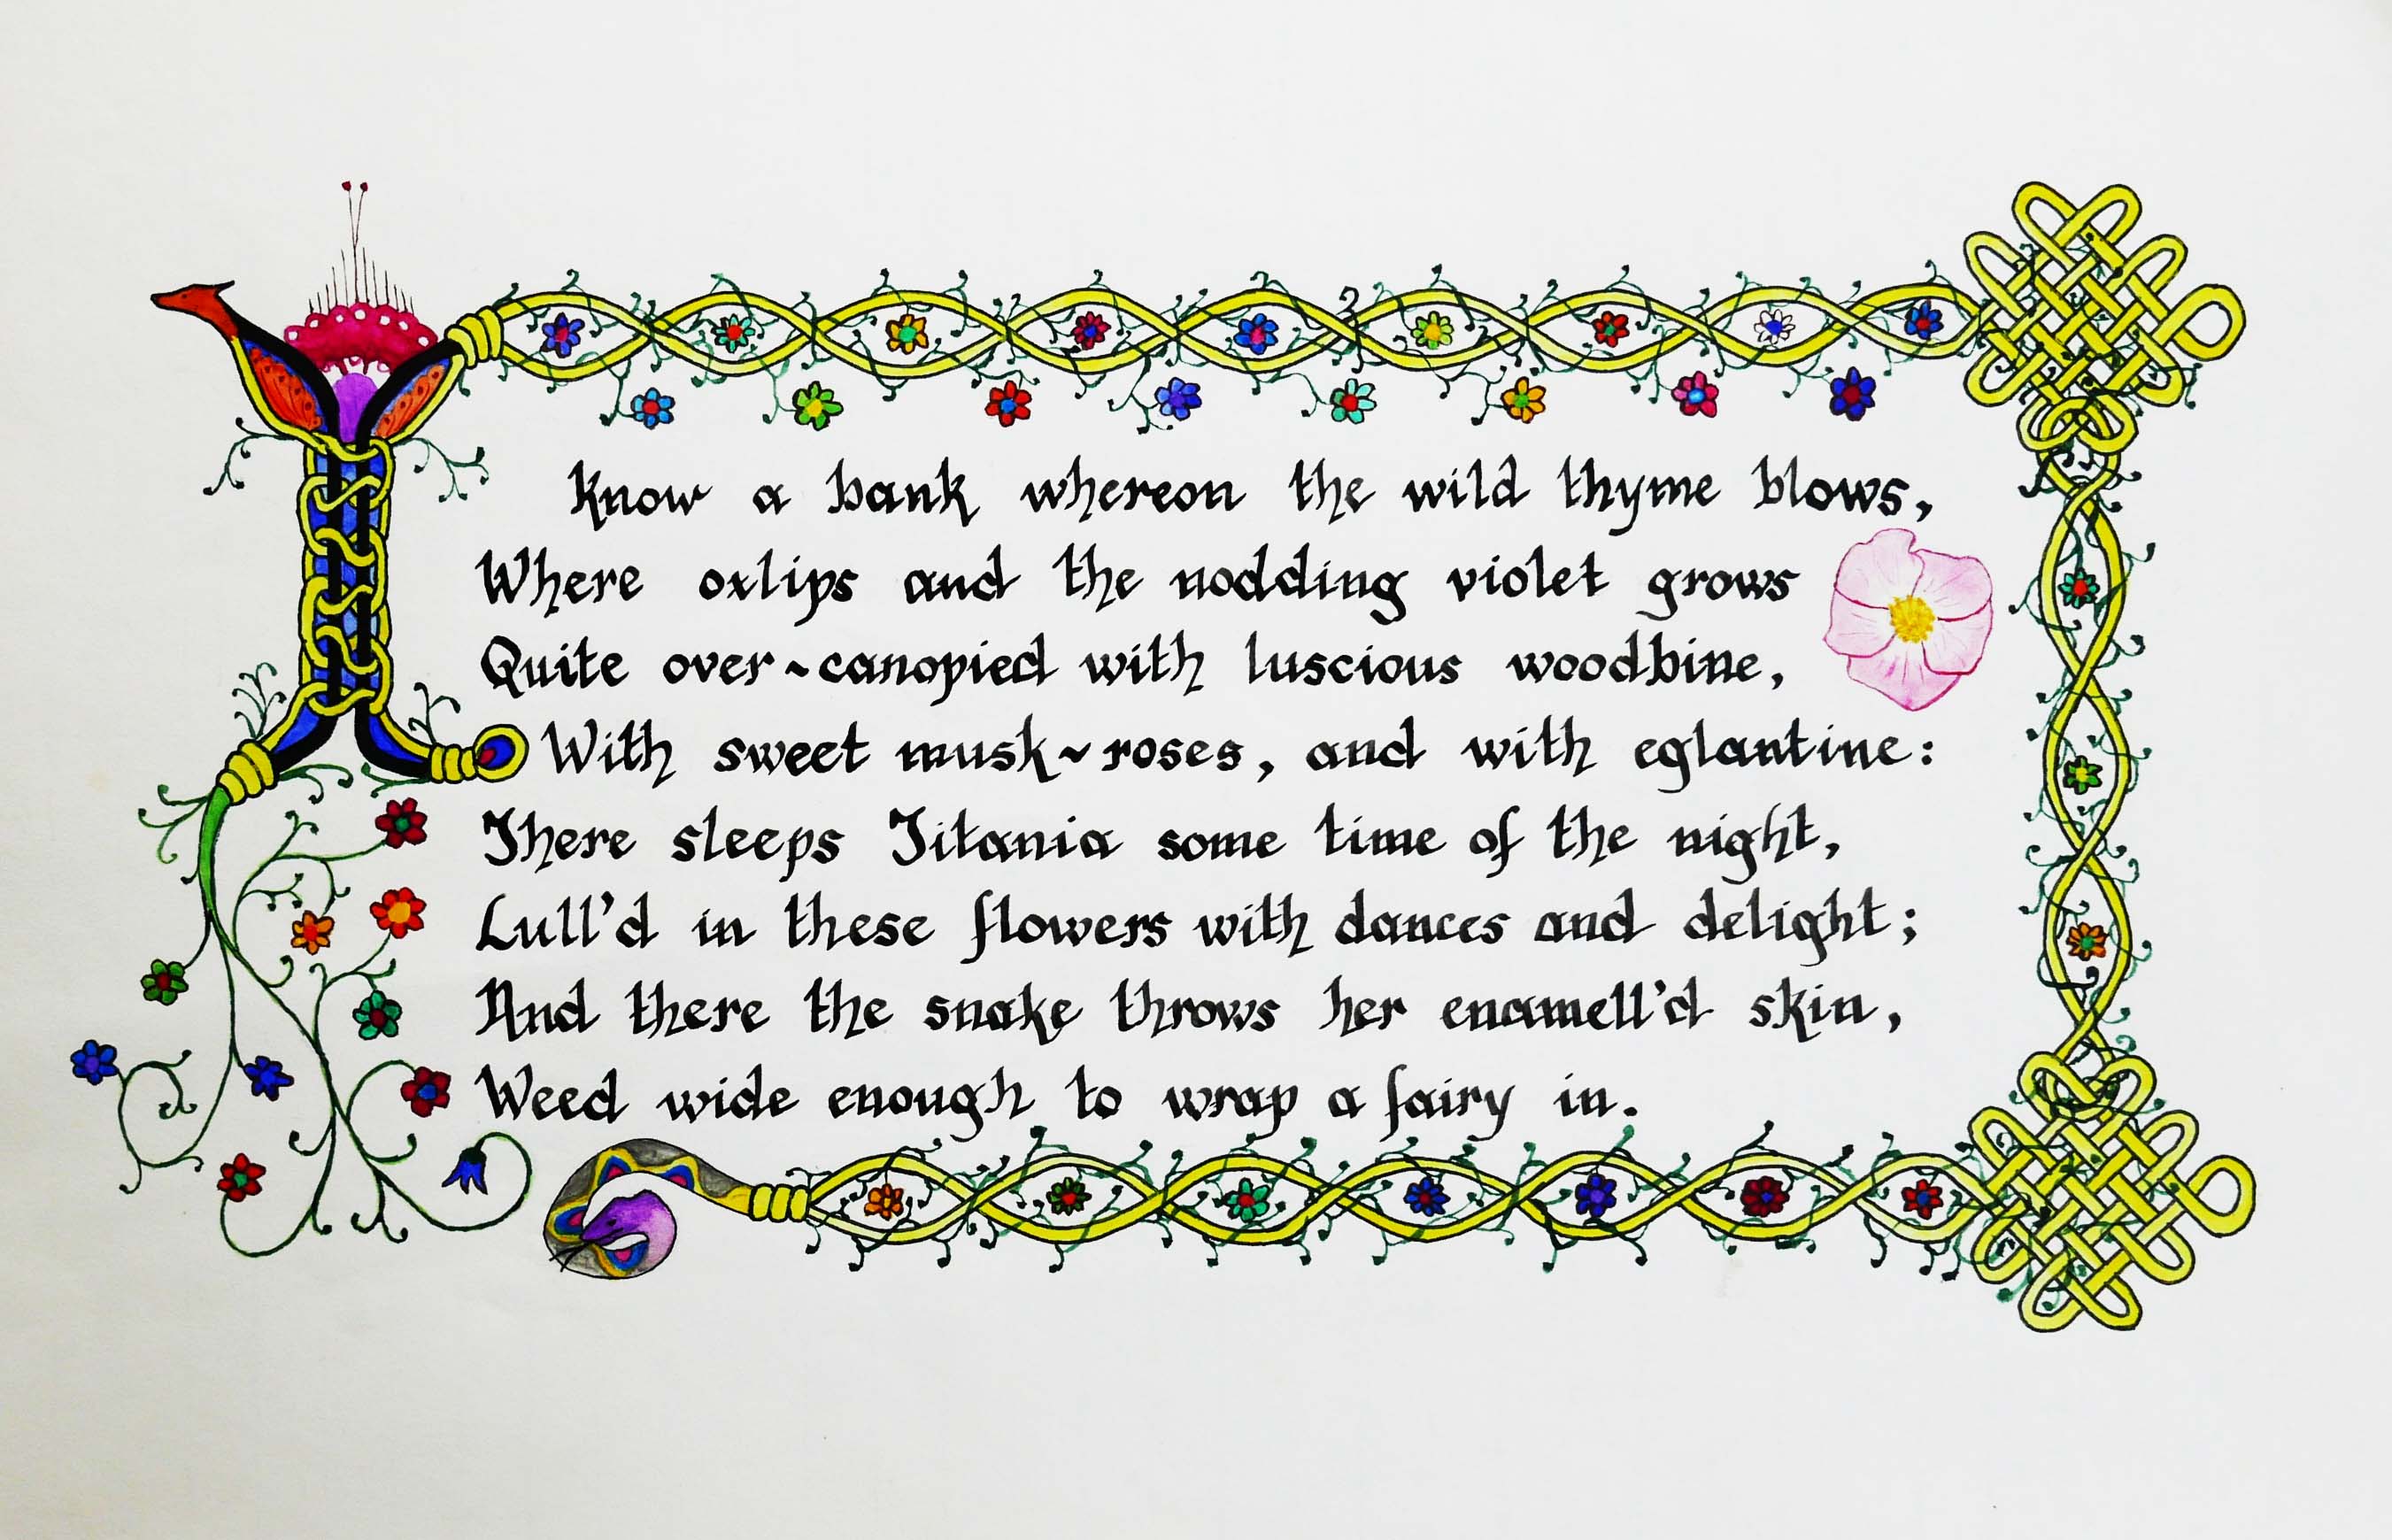 I know a bank whereon the wild thyme blows,
Where oxlips and the nodding violet grows
Quite over~canopied with luscious woodbine,
With sweet musk~roses, and with eglantine:
There sleeps Titania some time of the night,
Lull'd in these flowers with dances and delight;
And there the snake throws her enamell'd skin,
Weed wide enough to wrap a fairy in.